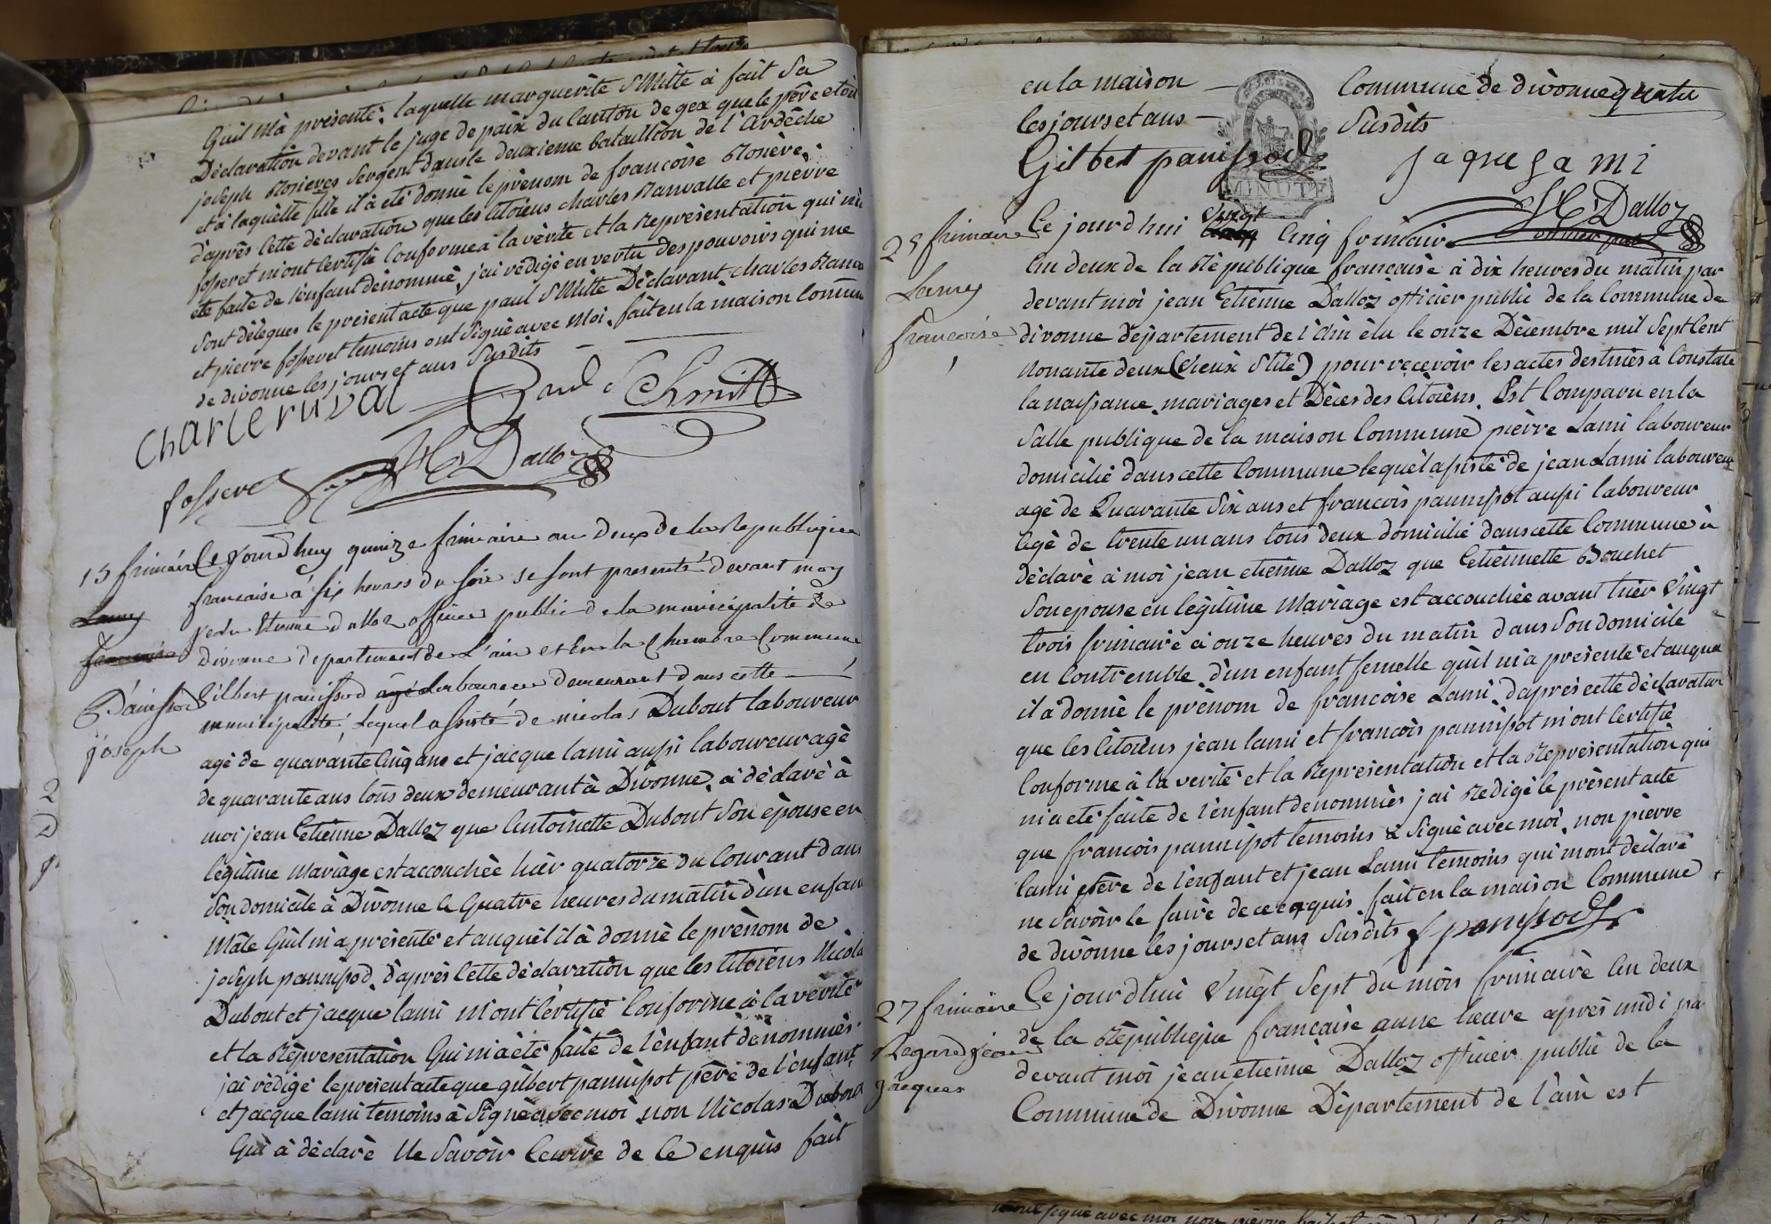 Quil m'a présenté, laquelle marguerite Smitte à fait Sa
Déclaration devant le juge de paix du Canton de gex que le père étoit
joseph Rosieres Sergent dans le deuxieme bataillon de l'Ardèche
et à laquelle fille il à été donné le prénom de françoise Rosière.
d'après Cette déclaration que les Citoiens Charles Ranvalle et pierre
fosseret m'ont Certifié Conforme à la vérité et la Représentation qui m'a
été faite de l'enfant dénommé, j'ai rédigé en vertu des pouvoirs qui me
Sont délégués le présent acte que paul Smitte Déclarant Charles Ranv
et pierre fosseret temoins ont Signé avec Moi. fait en la maison Commune
de divonne les jours et ans Susdits
Charle ruval Paul Schmitt
fosseret J E Dalloz
15 frimaire
Lamy
françoise
Panissod
joseph
Ce Jourdhuy quinze frimaire an Deux de la Republique
francaise à six heures du soir se sont presenté devant moy
Jean Etienne dalloz officier public de la municipalité de
divonne departement de L'ain et En la Chambre Commune
Gilbert panissod agé Laboureur Demeurant dans cette
municipalité, Lequel assisté de nicolas Dubout laboureur
agé de quarante Cinq ans et jacque lami aussi laboureur agé
de quarante ans tous deux demeurant à Divonne, à déclaré à
moi jean Etienne Dalloz que Antoinette Dubout Son épouse en
légitime Mariage est accouchée hier quatorze du Courant dans
Son domicile à Divonne à Quatre heures du matin d'un enfant
Mâle Qu'il m'a présenté et auquel il à donné le prénom de
joseph pannissod. d'après Cette déclaration que les Citoiens Nicolas
Dubout et jacque lami M'ont Certifié Conforme à la vérité
et la Réprésentation Qui m'a été faite de l'enfant dénommés.
j'ai rédigé le présent acte que gilbert pannissot père de l'enfant
et jacque lami temoins à Signé avec moi non Nicolas Dubout
Qui à déclaré Ne Savoir Ecrire de Ce enquis fait
en la maison Commune de divonne
les jours et ans Susdits
Gilbert panissod jaque lami
MINUTE
J E Dalloz
officier pub
25 frimaire
Lamy
françoise
Ce jourd'hui vingt Cinq frimaire
An deux de la République francaise à dix heures du matin par
devant moi jean Etienne Dalloz officier public de la Commune de
divonne Département de l'Ain élu le onze Décembre mil Sept Cent
Nonante deux (vieux Stile) pour recevoir les actes destinés à Constater
la naissance, mariages et Décès des Citoiens. Est Comparu en la
Salle publique de la maison Commune pierre Lami laboureur
domicilié dans cette Commune lequel assisté de jean Lami laboureur
agé de Quarante Six ans et francois pannissot aussi laboureur
agé de trente un ans tous deux domicilié dans cette Commune à
Déclaré à moi jean etienne Dalloz que Etiennette Bouchet
Son épouse en légitime Mariage est accouchée avant hier Vingt
trois frimaire à onze heures du matin dans Son domicile
en Contremble d'un enfant femelle qu'il m'a présenté et auquel
il a donné le prénom de francoise Lami, d'après cette déclaration
que les Citoiens jean lami et francois pannissot m'ont Certifié
Conforme à la verité et la Représentation et la Représentation qui
m'a été faite de l'enfant denommés j'ai Redigé le présent acte
que francois pannissot temoins & Signé avec moi, non pierre
lami père de l'enfant et jean Lami temoins qui m'ont déclaré
ne Savoir le faire de ce enquis fait en la maison Commune
de divonne les jours et ans Susdits f panissod
27 frimaire
Regard jean
jacques
Ce jourd'hui Vingt Sept du mois frimaire An deux
de la République francaise a une heure après midi par
devant moi jean etienne Dalloz officier public de la
Commune de Divonne Département de l'ain est